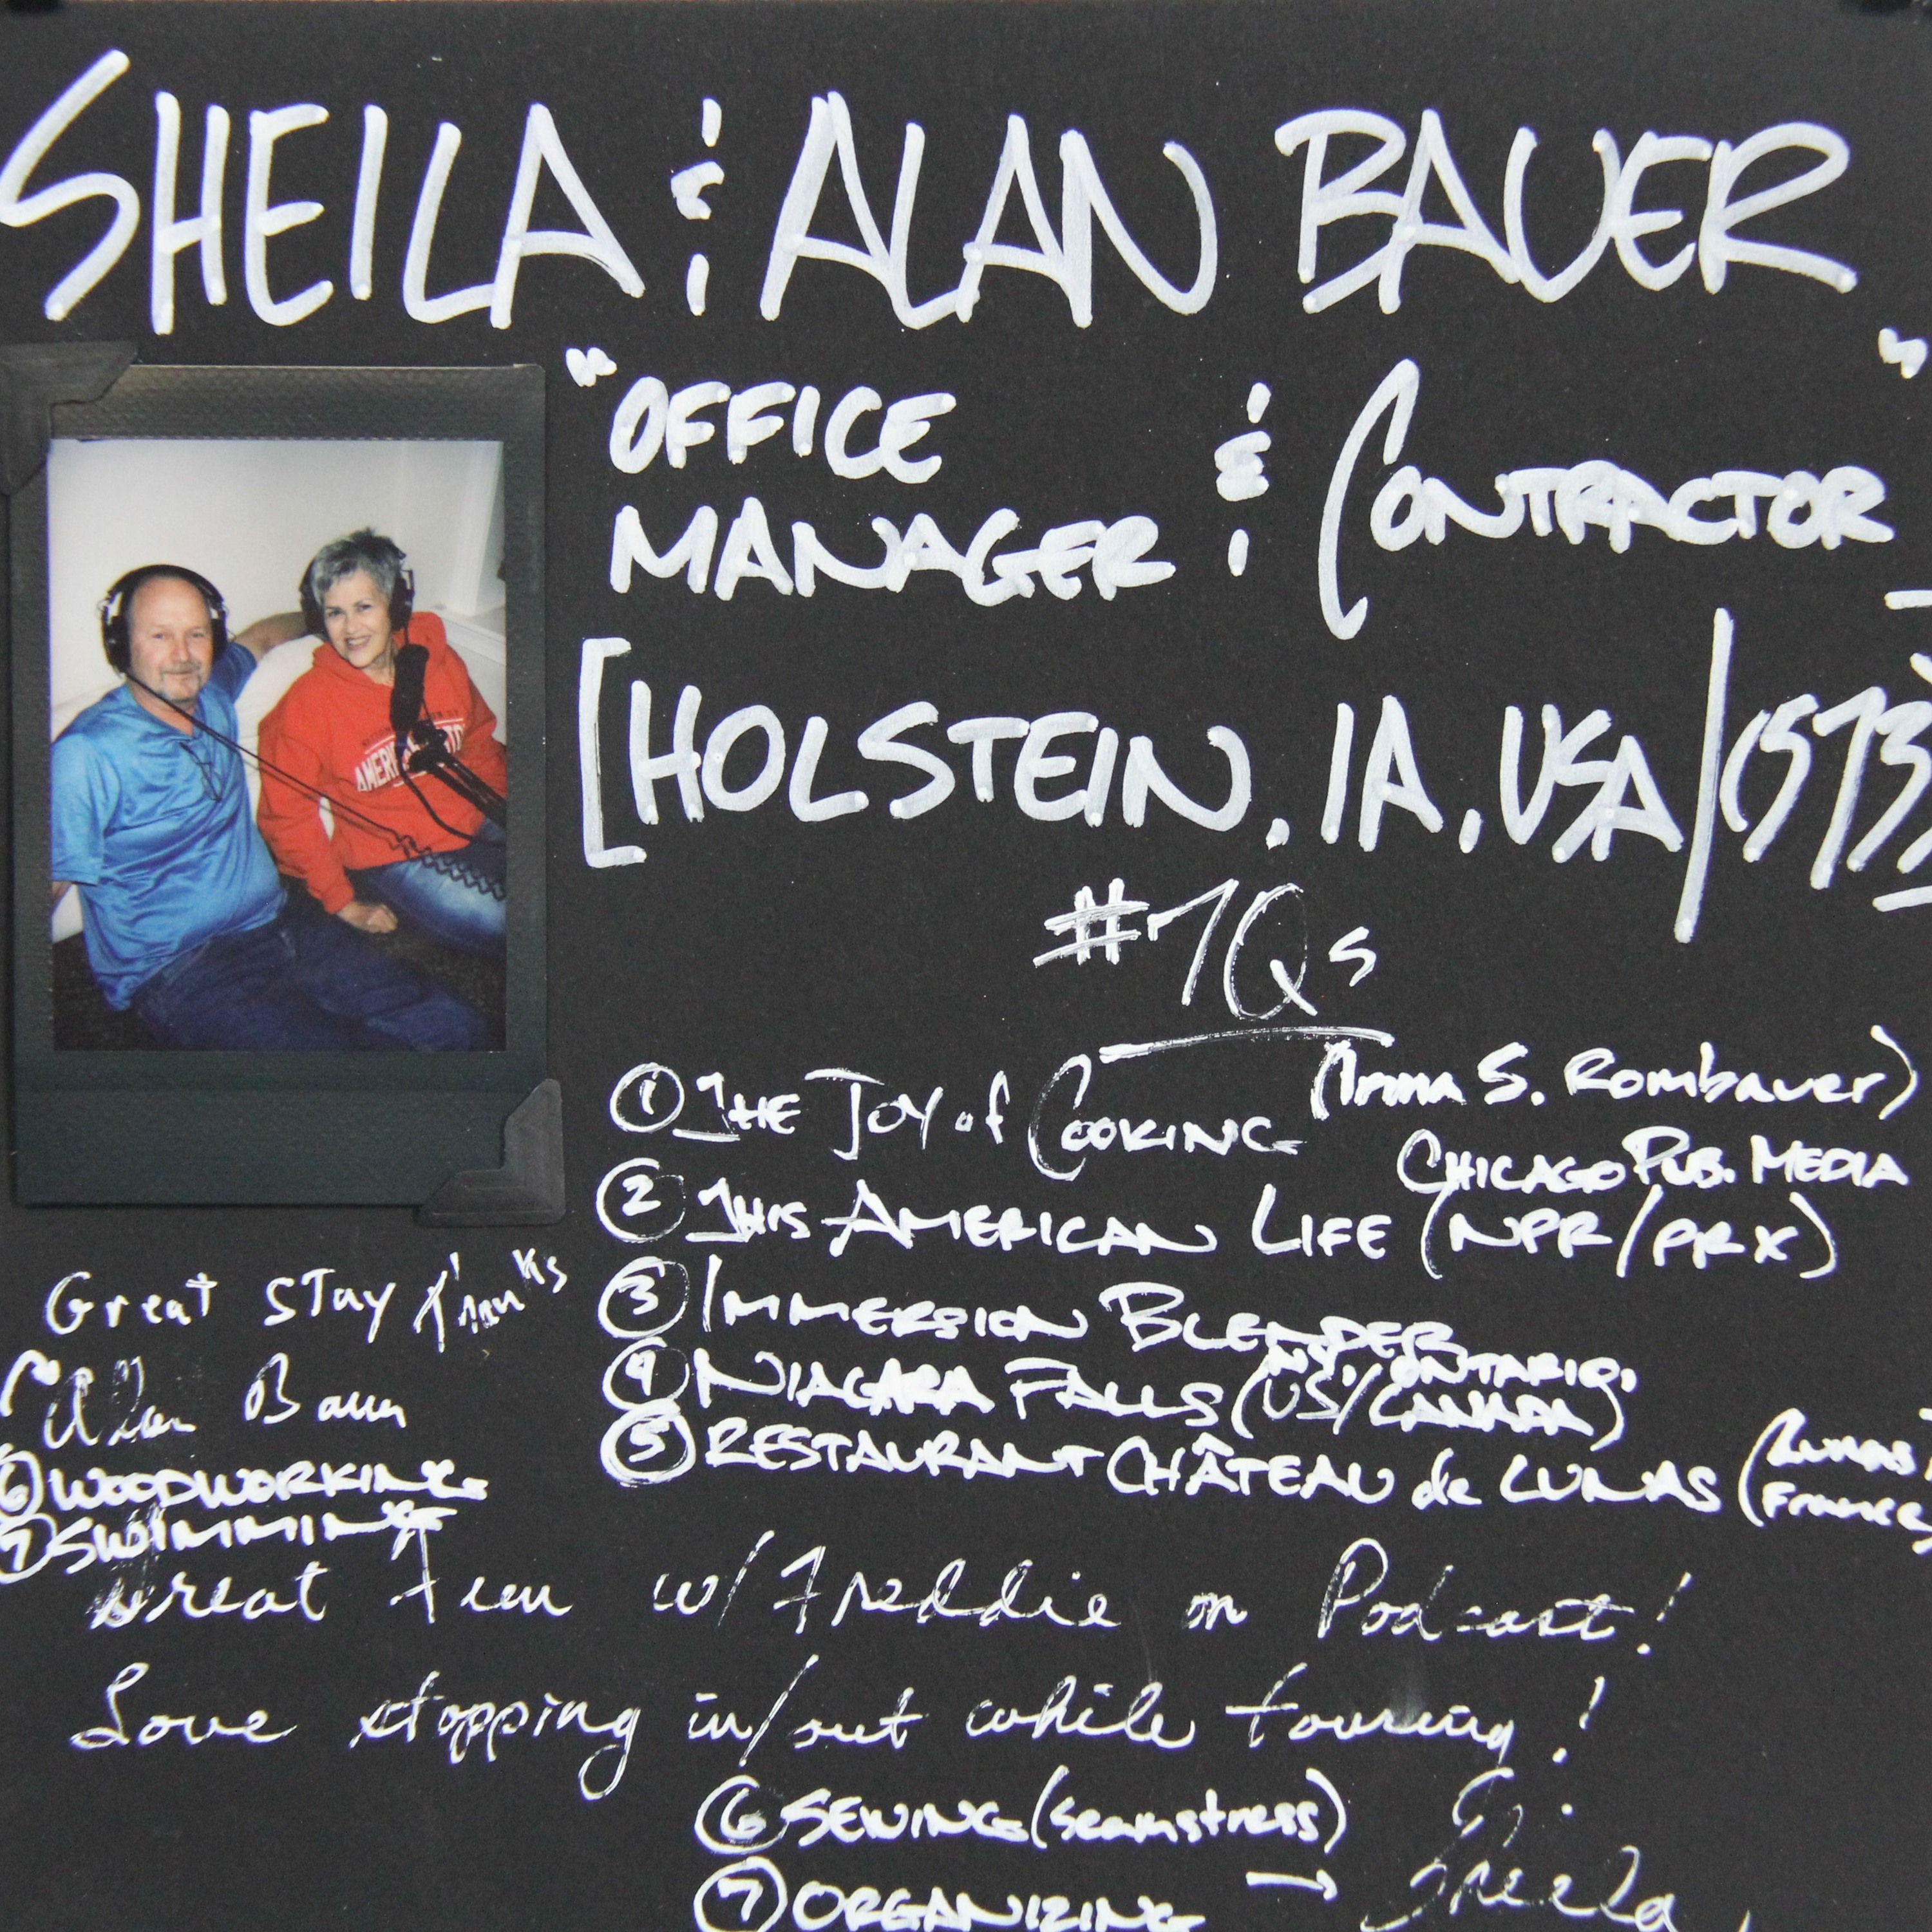 SHEILA & ALAN BAUER
"OFFICE MANAGER & CONTRACTOR"
[HOLSTEIN, IA, USA/1573]
#7Qs
① THE JOY of COOKING (Irma S. Rombauer)
CHICAGO PUB. MEDIA
② THIS AMERICAN LIFE (NPR/PRX)
③ IMMERSION BLENDER
④ NIAGARA FALLS (NY, US/ONTARIO, CANADA)
⑤ RESTAURANT CHÂTEAU de LUNAS (Lunas, France)
Great STay Thanks
Alan Bauer
⑥ WOODWORKING
⑦ SWIMMING
Great Fun w/ Freddie on Podcast!
Love stopping in/out while touring!
⑥ SEWING (seamstress)
⑦ ORGANIZING → Sheila